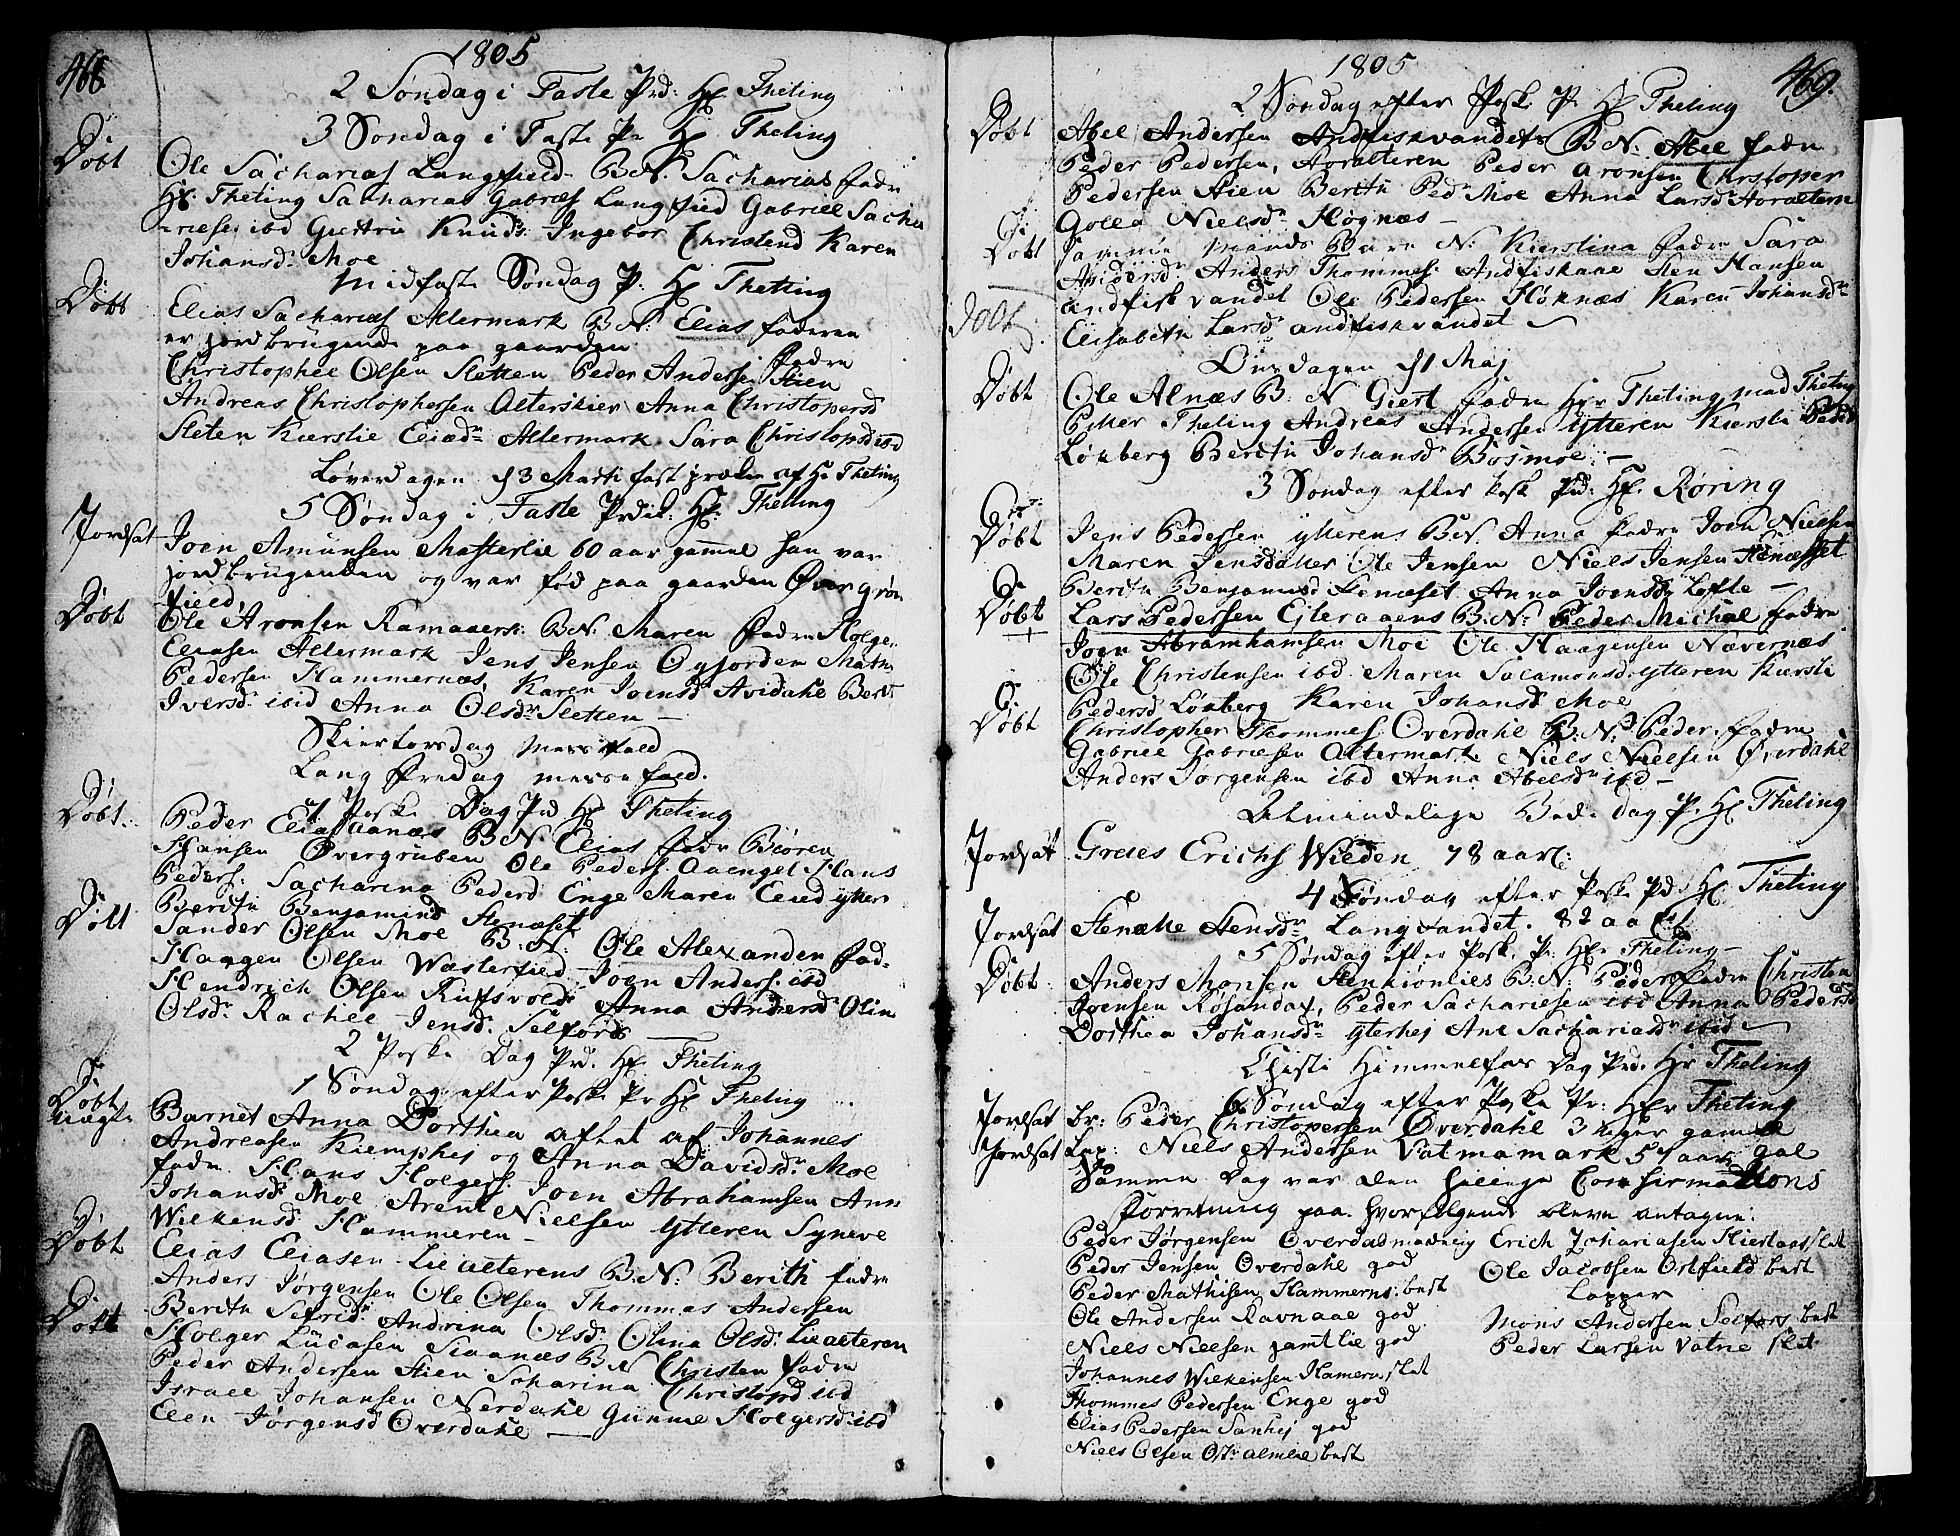 468
1805
2 Søndag i Faste Prd: Hr Theting
3 Søndag i Faste Pr Hr Theting
Døbt
Ole Sacharias Langfield B.N. Sacharias fadr
Hr. Theting Sacharias Gabriels Langfied Gabriel Sacha
riesen ibd Giertru Knuds: Ingebor Christend Karen
Johansdr Moe
Midfaste Søndag P. Hr Theting
Døbt
Elias Sacharias Altermark B.N: Elias faderen
er jordbrugende paa gaarden fadre
Christophel Olsen Sletten Peder Andersen Stien
Andreas Christophersen Alterskier Anna Christopersd
Sleten Kierstie Eliædr Altermark Sara Christopsd ibd
Løverdagen 13 Marti fast præken af Hr Theting
5 Søndag i Faste Prdik: Hr: Theting
Jordsat
Joen Amunsen Masterlie 60 aar gammel han var
jordbrugenden og var fød paa gaarden Øvergrøn
fieed
Døbt
Ole Aronsen Ramaaers: B.N. Maren fadre Holger
Eliasen Altermark Jens Jensen Øyjorden Mats
Pedersen Hammernæs, Karen Joensd Avidahl Berit
Iversdr ibid Anna Olsdr Sletten —
Skiertorsdag Messefald
Lang Fredag messefald.
1 Poske Dag Prd Hr Theting
Døbt
Peder Elias Aanæs B.N. Elias fadr Biøren
Hansen Øvergruben Ole Peders. Aaenget Hans
Peders: Sacharina Pederd Enge Maren Elied ytter
Berith Benjamind Stenæset
Døbt
Sander Olsen Moe B.N: Ole Alexander fad-
Haagen Olsen Wæsterfied Joen Anders. ibd
Hendrich Olsen Ruffsvold Anna Andersd Olin
Olsdr Rachel Jensd: Selfords
2 Poske Dag Prd. Hr Theting
1 Søndag efter Poske Pr Hr Theting
Døbt
Uægte
Barnet Anna Dorthea aflet af Johannes
Andreasen Kiemphej og Anna Davidsdr Moe
fadr. Hans Holgers. Joen Abrahamsen Ann
Johansd: Moe Arent Nielsen Ytteren Syneve
Wilkensd Hammeren —
Døbt
Elias Eliasen Lilalterens B.N: Berith fadre
Anders Jørgensen Ole Olsen Thommas Andersen
Berith Sefridr Andrina Olsd: Olina Olsd: Lilalteren
Døbt
Holger Lucasen Straanæs B N Christen fadre
Peder Andersen Stien Scharina Christopd ibd
Israel Johansen Nerdahl Gunnel Holgersd: ibd
Elen Jørgensd Overdahl —
469.
1805
2 Søndag efter Poske P. Hr Theting
Døbt
Abel Andersen Andfiskvandets B N: Abel fadre
Peder Pedersen, Storalteren Peder Aronsen Christoper
Pedersen Stien Berith Pedr Moe Anna Larsd Storaltern
Golla Nielsdr Høgnæs —
Døbt
Samme Mands Barn N: Kierstina fadre Sara
Anders Thommes: Andfiskaae Sten Hansen
andfiskvandet Ole Pedersen Høknæs Karen Johansdr
Elisabeth Larsdr andfiskvandet
Døbt
Onsdagen 1 Maj
Døbt
Ole Alnæs B: N Giert fadre Hr Theting mad Theting
Peter Theting Andreas Andersen Ytteren Kiersti Peder
Lønberg Berith Johansdr Bosmoe —
3 Søndag efter Poske Prd: Hr. Røring
Døbt
Jens Pedersen ytterens B.N. Anna fadre Joen Nielsen
Maren Jensdatter Ole Jensen Niels Jensen Stenæsset
Berith Benjamind Stenæset Anna Joensdr Løfte —
Døbt
Lars Pedersen Ejteraaens B.N: Peder Michal fadre
Joen Abramhamsen Moe Ole Haagensen Nævernæs
Ole Christensen ibd. Maren Salamonsd. Ytteren Kiersti
Pedersd Lønberg Karen Johansd Moe
Døbt
Christopher Thommes Overdahl B: N: Peder fadre
Gabriel Gabrielsen Altermark Niels Nielsen Øverdahl
Anders Jørgensen ibd Anna Abelsdr ibd —
Almindelige Bede dag P. Hr Theting
Jordsat
Greles Erichs Wieden 78 aar:
4 Søndag efter Poske Prd Hr Theting
Jordsat
Stenæke Stensdr Langvandet. 82 aar
5 Søndag efter Poske P. Hr Theting —
Døbt
Anders Monsen Stenkionlies B.N: Peder fadre Christen
Joensen Røsandax, Peder Sachariesen ibd Anna Pedersd
Dorthea Johansdr Yterhej Ane Sachariasdr ibid —
Christi Himmelfar Dag Prd. Hr Theting
6 Søndag efter Poske Pr: Hr Theting
Jordsat
Br: Peder Christopersen Øverdahl 3 uger gamel
Jordsat
Lap: Niels Andersen Vatmamark 57 aar gal
Samme Dag var den hellige Confirmations
Forretning paa hvor følgende bleve antagne:
Peder Jørgensen Overdad maadeig
Peder Jensen Overdahl god
Peder Mathisen Hammerns: best
Ole Andersen Ravnaae god
Niels Nielsen Jamtlie god
Johannes Wilkensen Hamern slet
Thommes Pedersen Enge god
Elias Pedersen Sanhej god
Niels Olsen Ostr almlie best
Erich Zachariasen slet
Ole Jacobsen Ostfield best
Lapper
Mons Andersen Selfors best
Peder Larsen Vatne slet